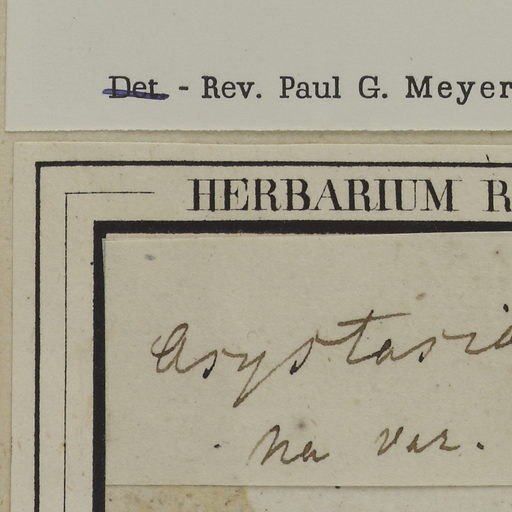 Det. - Rev. Paul G. Meyer
HERBARIUM R
Asystasia
na var.